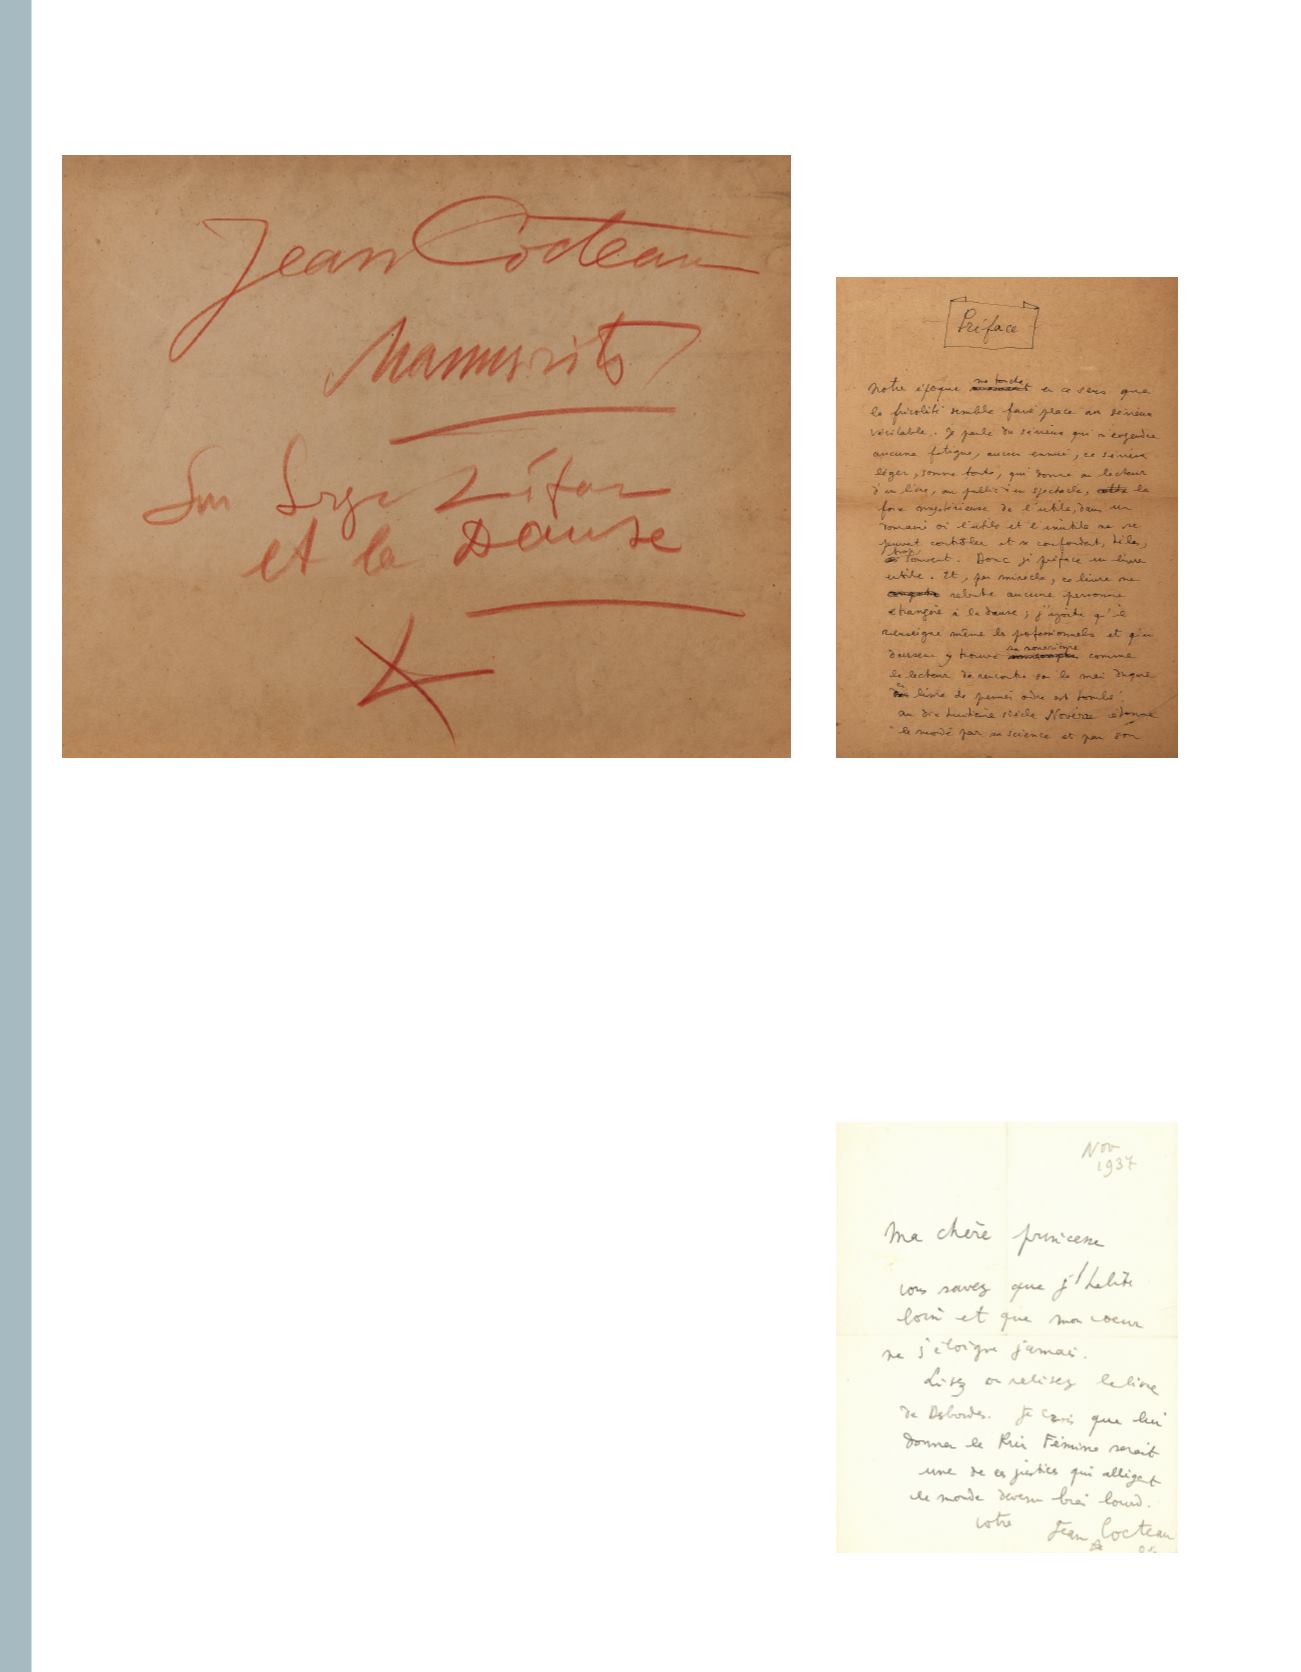 Jean Cocteau
Manuscrits
Sur Serge Lifar
et la Danse
Préface
Notre époque en ce sens que
la frivolité semble faire place au sérieux
véritable. Je parle du sérieux qui n'engendre
aucune fatigue, aucun ennui, ce sérieux
léger, somme toute, qui donne au lecteur
d'un livre, au public d'un spectacle, la
force mystérieuse de l'utile, dans un
domaine où l'utile et l'inutile ne se
peuvent contrôler et se confondent, hélas,
trop
souvent. Donc je préface un livre
utile. Et, par miracle, ce livre ne
rebute aucune personne
étrangère à la danse ; j'ajoute qu'il
renseigne même les professionnels et qu'un
danseur y trouve sa nourriture comme
le lecteur de rencontre sur la main duquel
livre de premier ordre est tombé.
au dix huitième siècle Noverre étonne
le monde par sa science et par son
Nov
1937
Ma chère princesse
vous savez que j'habite
loin et que mon coeur
ne s'éloigne jamais.
Lisez ou relisez le livre
de Desbordes. Je crois que lui
donner le Prix Fémina serait
une de ces justices qui allègent
le monde devenu bien lourd.
votre Jean Cocteau